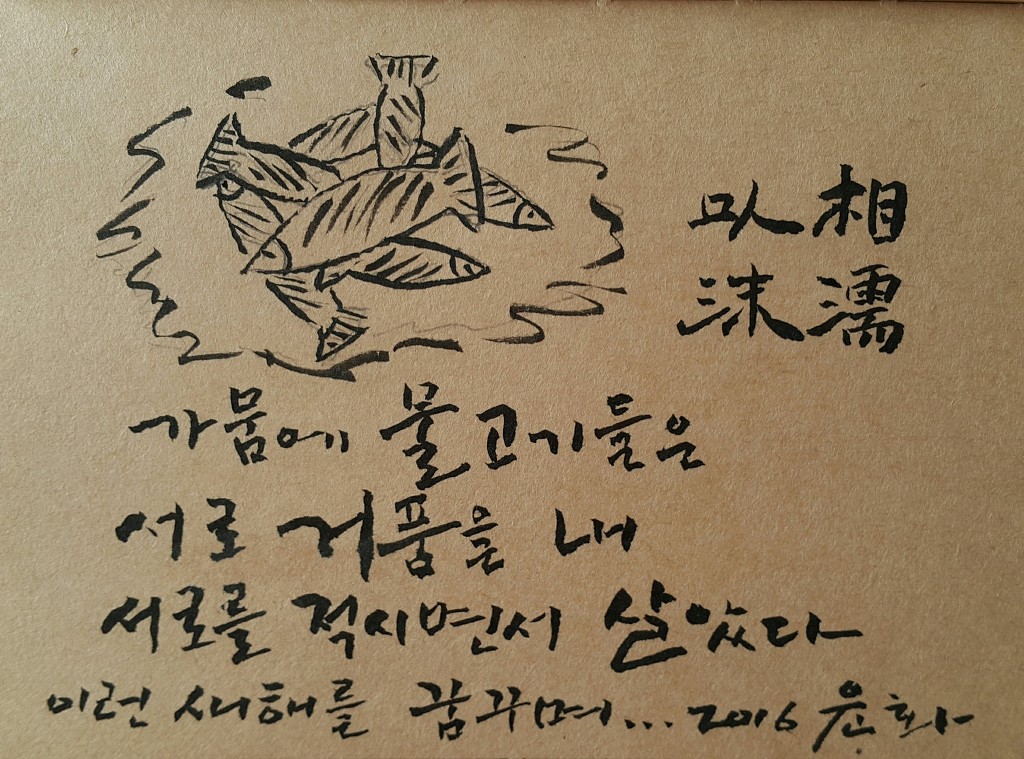 相濡
以沫
가뭄에 물고기들은
서로 거품을 내
서로를 적시면서 살았다
이런 새해를 꿈꾸며... 2016 윤화